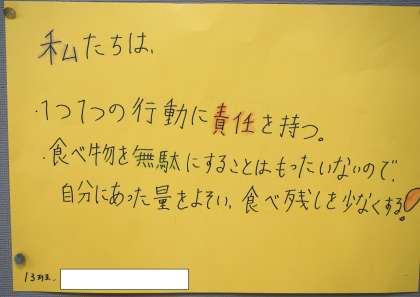 私たちは、
・1つ1つの行動に責任を持つ。
・食べ物を無駄にすることはもったいないので、
自分にあった量をよそい、食べ残しを少なくする。
13班.